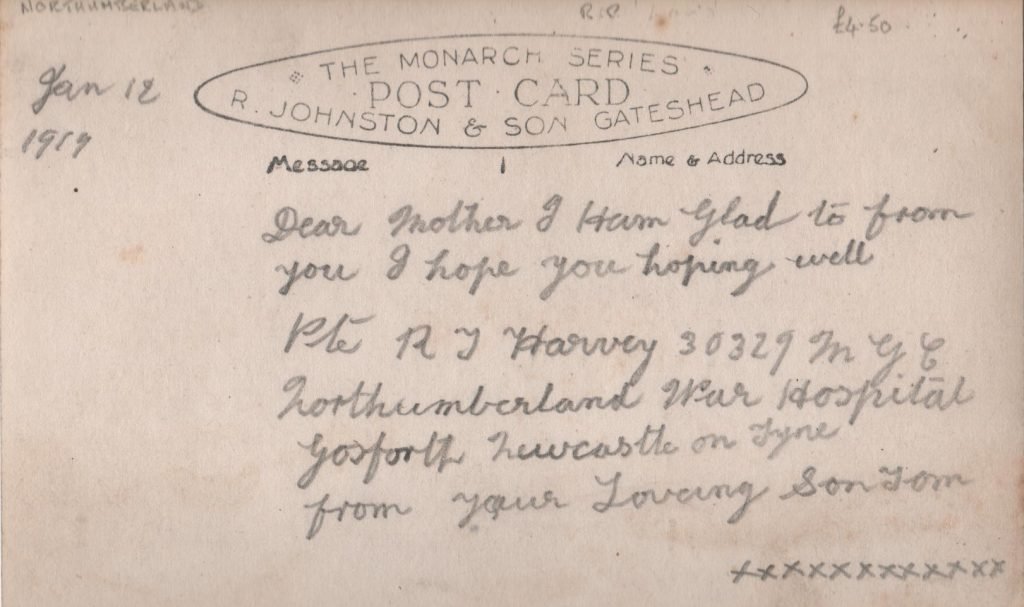 NORTHUMBERLAND
R.P.
£4.50
Jan 12
1919
THE MONARCH SERIES
POST CARD
R. JOHNSTON & SON GATESHEAD
Message
Name & Address
Dear Mother I Ham Glad to from
you I hope you hoping well
Pte R J Harvey 30329 M G C
Northumberland War Hospital
Gosforth Newcastle on Tyne
from your Loveing Son Tom
xxxxxxxxxxxx